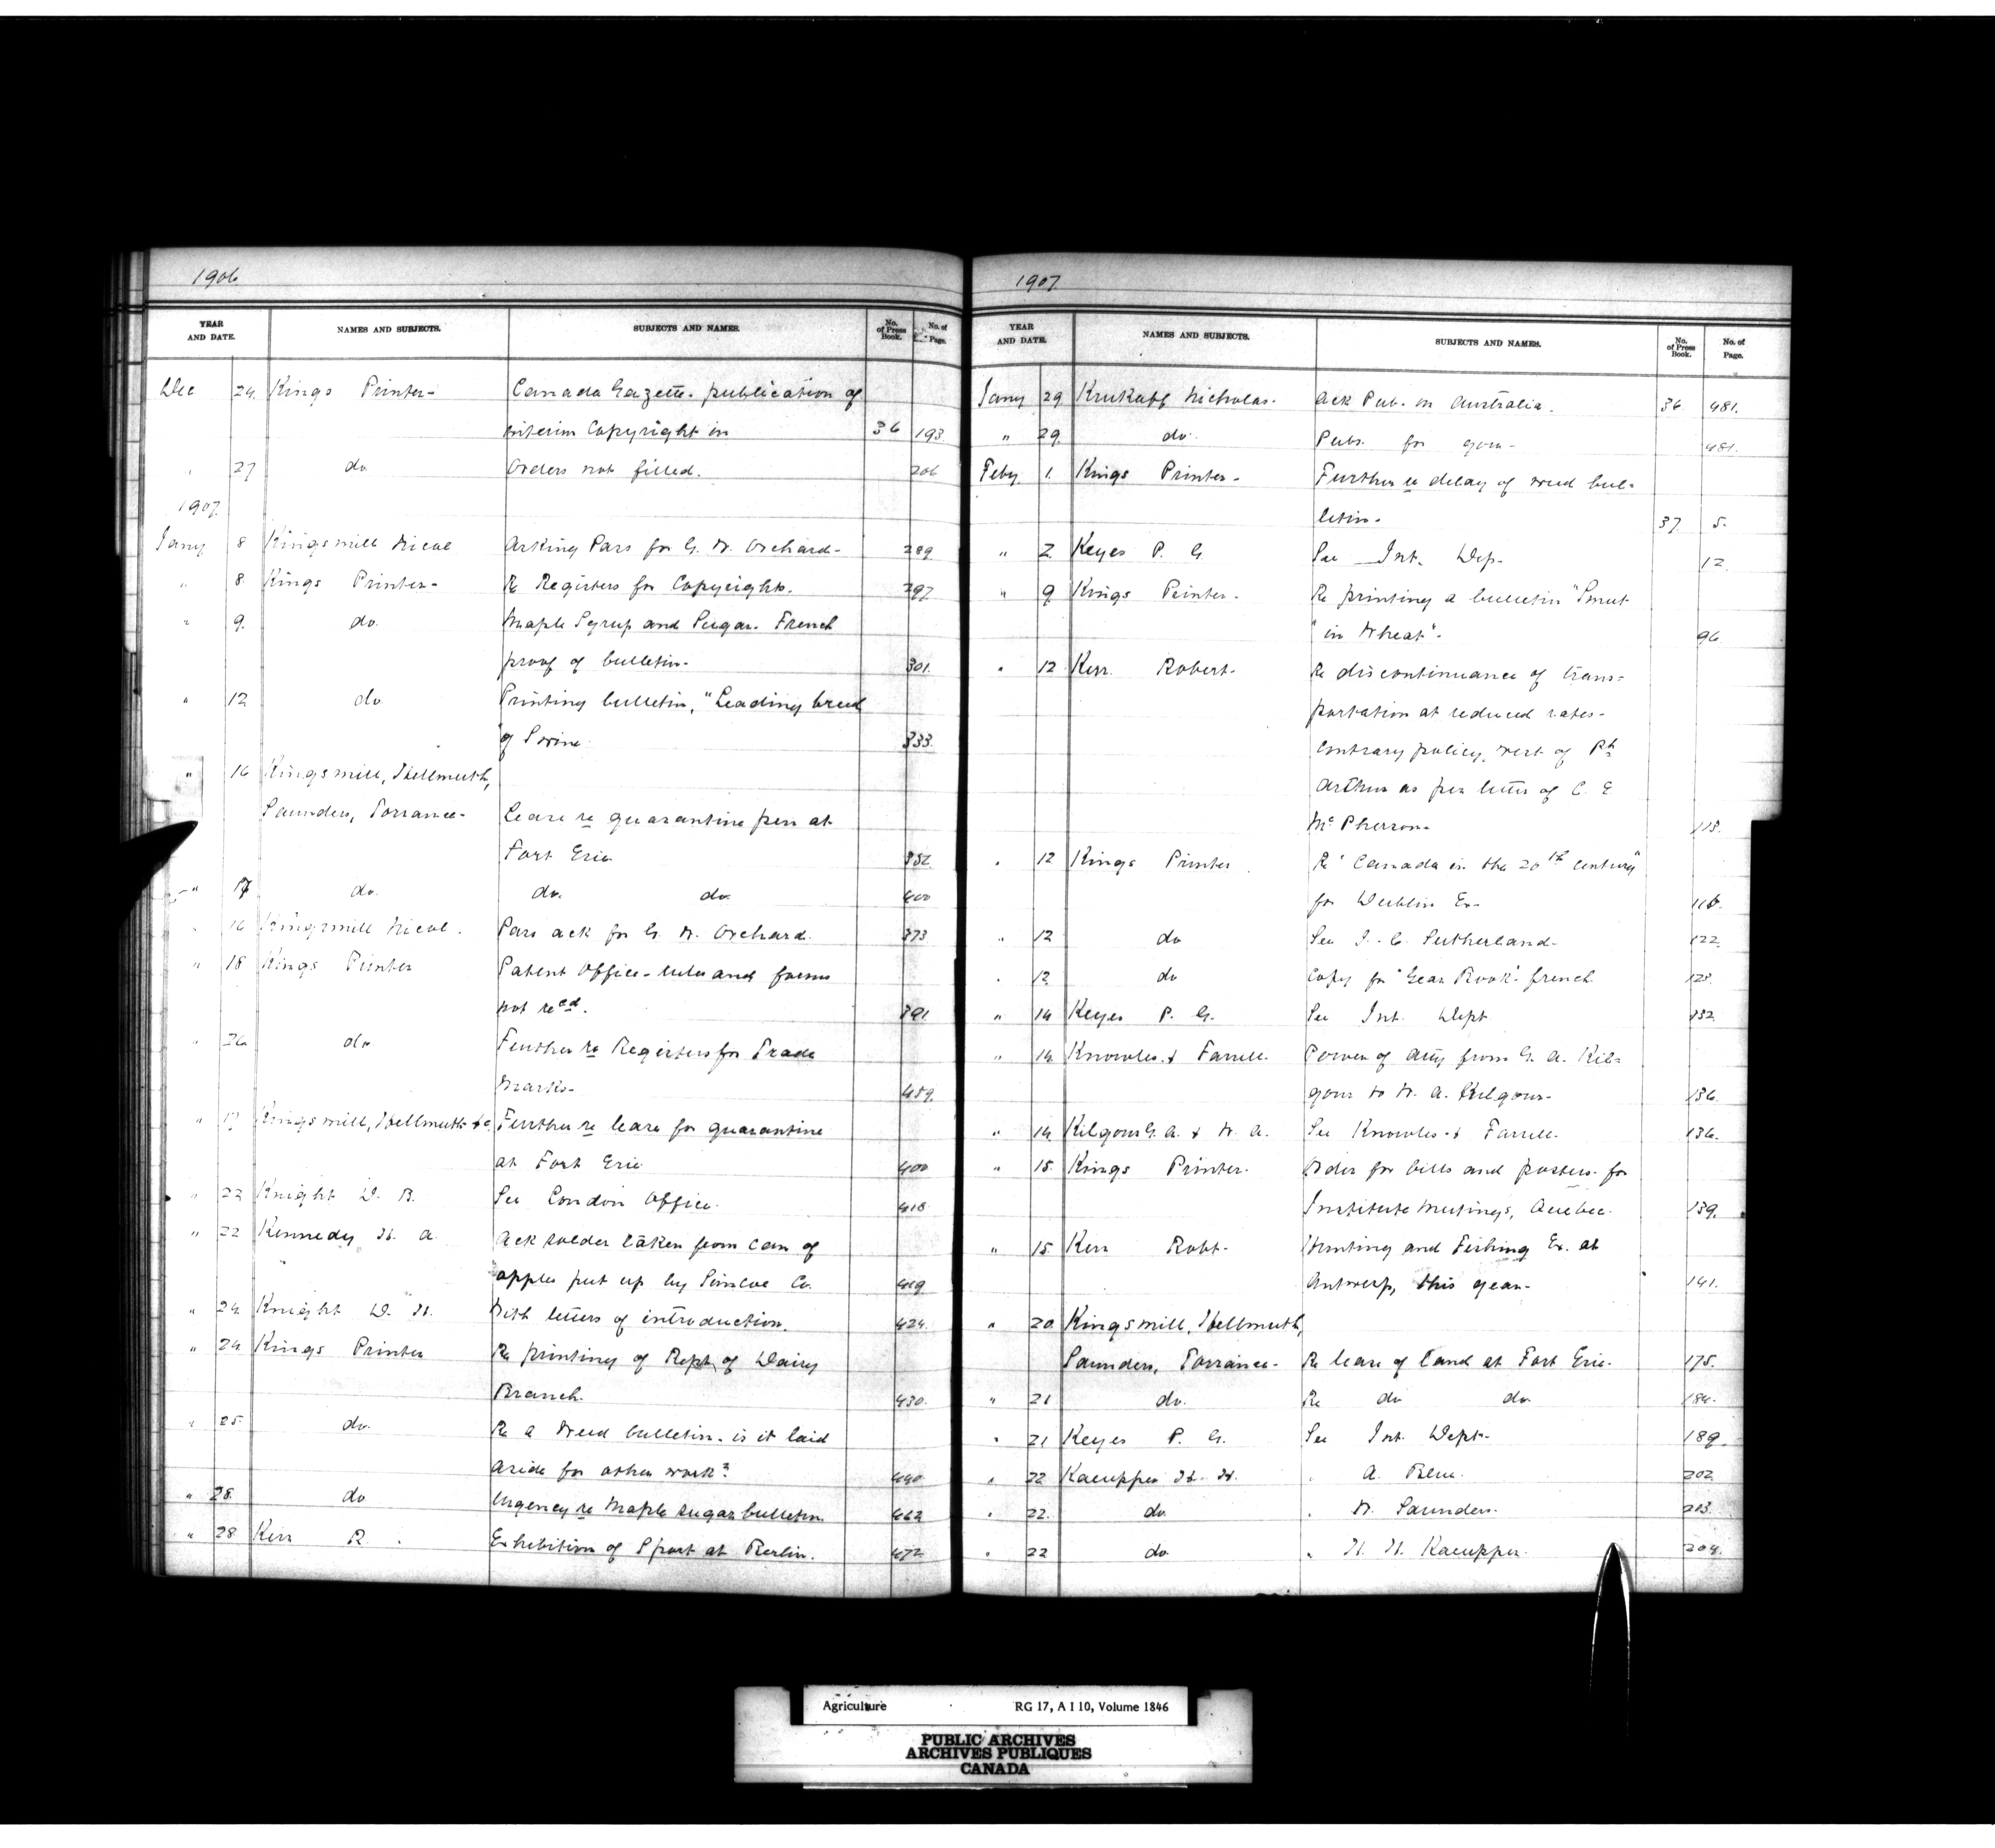 1906
YEAR AND DATE. NAMES AND SUBJECTS. SUBJECTS AND NAMES. No. of Press Book. No. of Page.
Dec 24 Kings Printer- Canada Gazette- publication of
interim Copyright in 36 193.
" 27 do Orders not filled. 206
1907.
Jany 8 Kingsmill Nicol Asking Pars for G. W. Orchard- 289
" 8. Kings Printer- Re Registers for Copyrights. 297.
" 9. do. Maple Syrup and Sugar- French
proof of bulletin- 301.
" 12 do Printing bulletin, "Leading breed
of Swine. 333.
" 16 Kingsmill, Hellmuth,
Saunders, Torrance- Lease re quarantine pen at
Fort Erie 352
" 17 do. do. do. 400
" 16 Kingsmill Nicol. Pars ack for G. W. Orchard. 373.
" 18 Kings Printer Patent Office- rules and forms
not recd. 391.
" 26 do Further re Registers for Trade
Marks- 459.
" 17 Kingsmill, Hellmuth &c. Further re lease for quarantine
at Fort Erie 400
" 22 Knight D. B. See London Office. 418.
" 22 Kennedy H. A. Ack solder taken from can of
apples put up by Simcoe Co. 419
" 24 Knight W. H. With letters of introduction. 424.
" 24 Kings Printer Re printing of Rept of Dairy
Branch. 430.
" 25. do. Re a weed bulletin- is it laid
aside for other work? 440.
" 28. do Urgency re Maple sugar bulletin 462
" 28 Kerr R. Exhibition of Sport at Berlin. 472
1907
YEAR AND DATE. NAMES AND SUBJECTS. SUBJECTS AND NAMES. No. of Press Book. No. of Page.
Jany 29 Krukoff Nicholas. Ack Pub. on Australia. 36 481.
" 29. do. Pubs. for gov- 481.
Feby 1. Kings Printer- Further re delay of weed bul-
letin- 37. 5.
" 2 Keyes P. G See Int. Dep- 12.
" 9 Kings Printer- Re printing a bulletin "Smut
"in Wheat"- 96
" 12 Kerr. Robert- Re discontinuance of trans-
portation at reduced rates-
Contrary policy, west of Pt
Arthur as per letter of C. E
McPherson- 113.
" 12 Kings Printer. Re "Canada in the 20th Century"
for Dublin Ex- 116.
" 12 do See J. C. Sutherland- 122.
" 12 do Copy for "Year Book"- french. 123.
" 14 Keyes P. G. See Int. Dept 132
" 14 Knowles & Farrell. Power of Atty from G. A. Kil-
gour to W. A. Kilgour- 136.
" 14 Kilgour G. A. & W. A. See Knowles & Farrell. 136.
" 15. Kings Printer. Order for bills and posters- for
Institute Meetings, Quebec. 139.
" 15 Kerr Robt- Hunting and Fishing Ex. at
Antwerp, this year- 141.
" 20 Kingsmill, Hellmuth,
Saunders, Torrance- Re lease of land at Fort Erie- 175.
" 21 do. Re do do 184.
" 21 Keyes P. G. See Int. Dept- 189.
" 22 Kaeupper H. H. " A. Blue. 202
" 22. do " W. Saunders. 203.
" 22 do " H. H. Kaeupper. 204.
Agriculture RG 17, A I 10, Volume 1846
PUBLIC ARCHIVES
ARCHIVES PUBLIQUES
CANADA